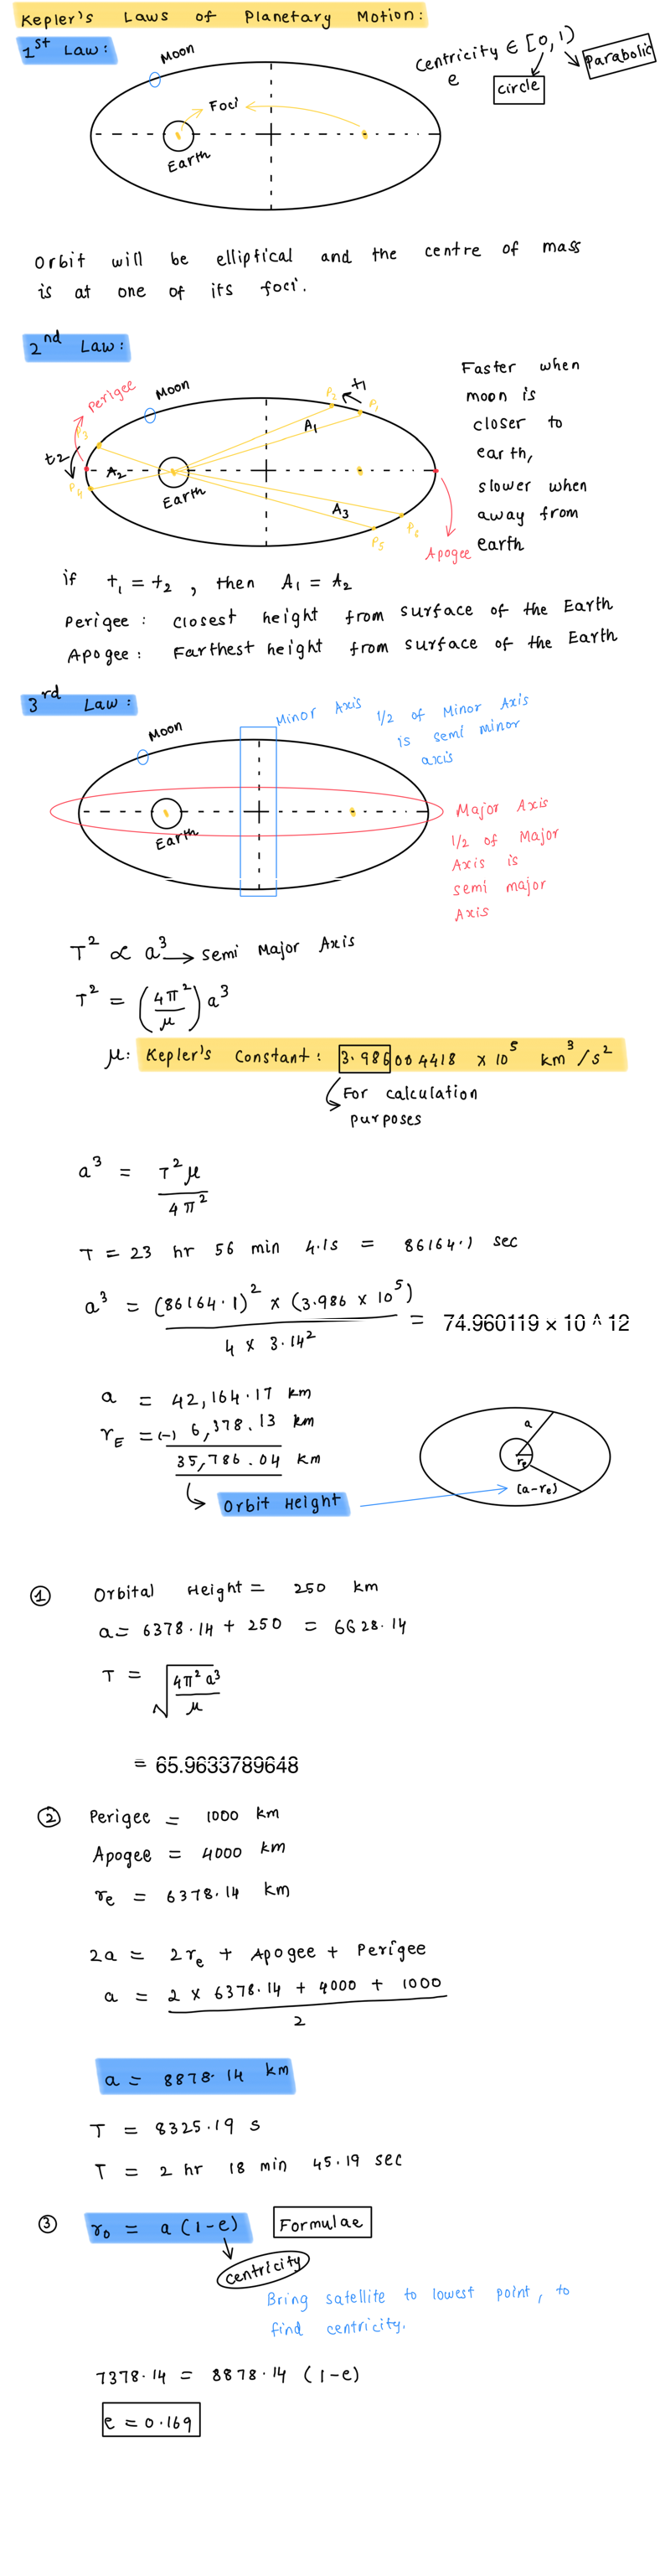 Kepler's Laws of Planetary Motion:
1st Law:
Moon
Centricity ∈ [0, 1)
e
circle
parabolic
Foci
Earth
Orbit will be elliptical and the centre of mass
is at one of its foci.
2nd Law:
Perigee
Moon
P2
t1
P1
A1
P3
t2
A2
P4
Earth
A3
P6
P5
Apogee
Faster when
moon is
closer to
earth,
slower when
away from
earth
if t1 = t2 , then A1 = A2
Perigee: Closest height from surface of the Earth
Apogee: Farthest height from surface of the Earth
3rd Law:
Minor Axis 1/2 of Minor Axis
is semi minor
axis
Moon
Earth
Major Axis
1/2 of Major
Axis is
semi major
Axis
T² ∝ a³ → Semi Major Axis
T² = (4π²/μ) a³
μ: Kepler's Constant: 3.986004418 × 10⁵ km³/s²
For calculation
purposes
a³ = T²μ / 4π²
T = 23 hr 56 min 4.1s = 86164.1 sec
a³ = (86164.1)² × (3.986 × 10⁵) / 4 × 3.14² = 74.960119 × 10 ^ 12
a = 42,164.17 km
rE = (-) 6,378.13 km
35,786.04 km
Orbit Height
a
re
(a-re)
① Orbital Height = 250 km
a = 6378.14 + 250 = 6628.14
T = √(4π² a³ / μ)
= 65.9633789648
② Perigee = 1000 km
Apogee = 4000 km
re = 6378.14 km
2a = 2re + Apogee + Perigee
a = 2 × 6378.14 + 4000 + 1000 / 2
a = 8878.14 km
T = 8325.19 s
T = 2 hr 18 min 45.19 sec
③ r0 = a (1-e) Formulae
centricity
Bring satellite to lowest point, to
find centricity.
7378.14 = 8878.14 (1-e)
e = 0.169